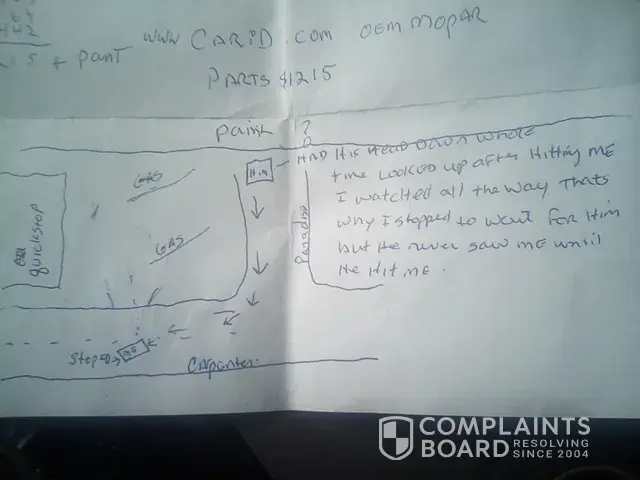 442
215 + paint
www CARiD.com OEM MOPAR
PARTS $1215
paint ?
HAD His HEAD DOWN WHOLE
time LOOKED up AFTER HITTING ME
I watched all the way thats
why I stopped to wait for Him
but He never saw me until
He Hit me.
Him
GAS
GAS
quickstop
Paradise
Stopped
ME
Carpenter
COMPLAINTS
BOARD
RESOLVING
SINCE 2004